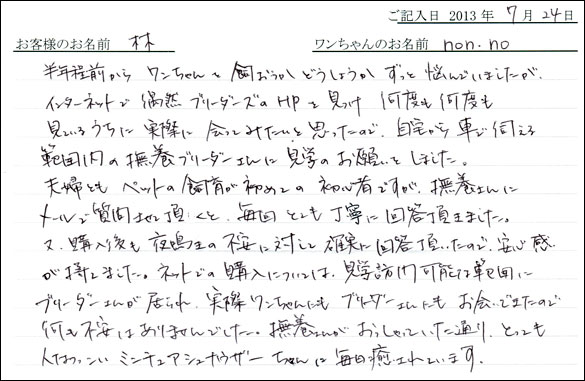 ご記入日 2013年 7月 24日
お客様のお名前 林 ワンちゃんのお名前 non.no
半年程前から ワンちゃんを飼おうかどうしようか ずっと悩んでいましたが、
インターネットで偶然ブリーダーズのHPを見つけ 何度も何度も
見ているうちに実際に会ってみたいと思ったので、自宅から車で伺える
範囲内の撫養ブリーダーさんに見学のお願いをしました。
夫婦ともペットの飼育が初めての初心者ですが、撫養さんに
メールで質問させて頂くと、毎回とても丁寧に回答頂きました。
又、購入後も夜鳴きの不安に対して確実に回答頂いたので、安心感
が持てました。ネットでの購入については、見学訪問可能な範囲に
ブリーダーさんが居られ、実際ワンちゃんにもブリーダーさんにもお会いできたので
何も不安はありませんでした。撫養さんがおっしゃっていた通り、とっても
人なつっこいミニチュアシュナウザーちゃんに毎日癒されています。